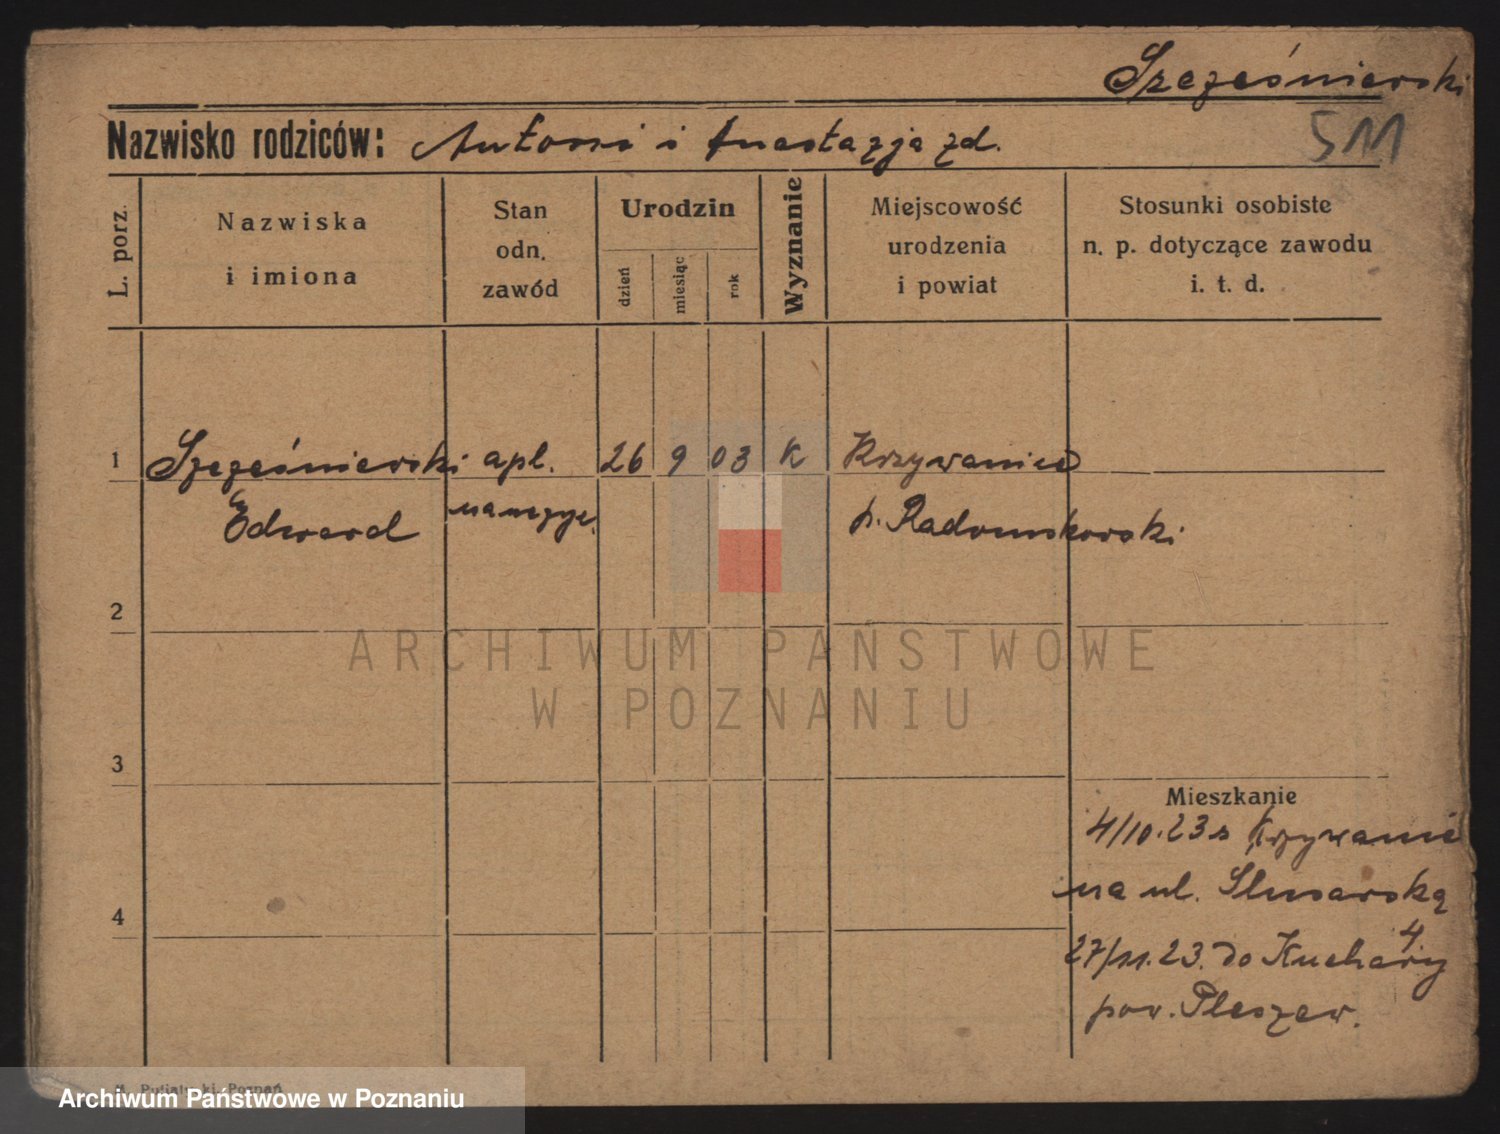 Szcześniewski
511
Nazwisko rodziców: Antoni i Anastazja zd.
L. porz.
Nazwiska
i imiona
Stan
odn.
zawód
Urodzin
dzień
miesiąc
rok
Wyznanie
Miejscowość
urodzenia
i powiat
Stosunki osobiste
n. p. dotyczące zawodu
i. t. d.
1 Szcześniewski apl. 26 9 03 K Krzywanice
Edward p. Radomskowski
2
ARCHIWUM PAŃSTWOWE
W POZNANIU
3
Mieszkanie
4/10.23 z Krzywanic
na ul. Slusarską
4
4
27/11.23. do Kuchary
pow. Pleszew.
Poznań
Archiwum Państwowe w Poznaniu